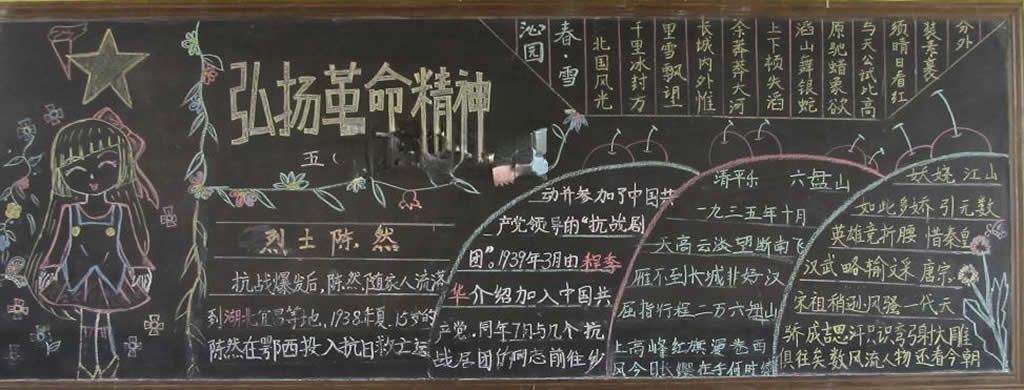 弘扬革命精神
五（
烈士陈然
抗战爆发后，陈然随家人流落
到湖北宜昌等地，1938年夏，15岁的
陈然在鄂西投入抗日救亡运
动并参加了中国共
产党领导的“抗战剧
团”。1939年3月由程季
华介绍加入中国共
产党。同年7月与几个抗
战居团的同志前往乡
清平乐 六盘山
一九三五年十月
天高云淡望断南飞
雁不到长城非好汉
屈指行程二万六盘山
上高峰红旗漫卷西
风今日长缨在手何时缚
沁园
春·雪
北国风光
千里冰封万
里雪飘望
长城内外惟
余莽莽大河
上下顿失滔
滔山舞银蛇
原驰蜡象欲
与天公试比高
须晴日看红
装素裹
分外
妖娆 江山
如此多娇 引无数
英雄竞折腰 惜秦皇
汉武略输文采 唐宗
宋祖稍逊风骚一代天
骄成吉思汗只识弯弓射大雕
俱往矣数风流人物还看今朝